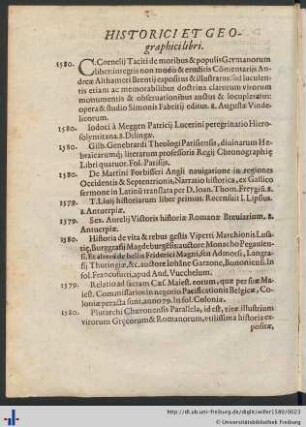 HISTORICI ET GEO-
graphici libri.
1580. C. Cornelij Taciti de moribus & populis Germanorum
liber integris non modo & eruditis Cōmentarijs An-
dreæ Althameri Brentij expositus & illustratus: sed luculen-
tis etiam ac memorabilibus doctrina clarorum virorum
monumentis & obseruationibus auctus & locupletatus:
opera & studio Simonis Fabricij editus. 8. Augustæ Vinde-
licorum.
1580. Iodoci à Meggen Patricij Lucerini peregrinatio Hiero-
solymitana. 8. Dilingæ.
1580. Gilb. Genebrardi Theologi Parisiensis, diuinarum He-
braicarumq; literarum professoris Regij Chronographiæ
Libri quatuor. Fol. Parisijs.
1580. De Martini Forbisseri Angli nauigatione in regiones
Occidentis & Septentrionis, Narratio historica, ex Gallico
sermone in Latinū translata per D. Ioan. Thom. Freygiū. 8.
1578. T. Liuij historiarum liber primus. Recensuit I. Lipsius.
8. Antuerpiæ.
1579. Sex. Aurelij Victoris historiæ Romanæ Breuiarium. 8.
Antuerpiæ.
1580. Historia de vita & rebus gestis Viperti Marchionis Lusa-
tiæ, Burggrafij Magdeburgēsis: auctore Monacho Pegauiensi.
Et altera de bellis Friderici Magni, seu Admorsi, Lantgra-
fij Thuringiæ, &c. auctore Iohāne Garzone, Bononiensi. In
fol. Francofurti, apud And. Vuechelum.
1579. Relatio ad sacram Cæs. Maiest. eorum, quæ per suæ Ma-
iest. Commissarios in negocio Pacificationis Belgicæ, Co-
loniæ peracta sunt, anno 79. In fol. Coloniæ.
1580. Plutarchi Chæronensis Parallela, id est, vitæ illustrium
virorum Græcorum & Romanorum, vtilissima historia ex-
positæ,
http://dl.ub.uni-freiburg.de/diglit/willer1580/0023
© Universitätsbibliothek Freiburg